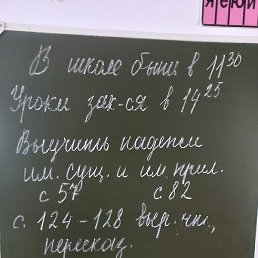 Я Е Ё Й
В школе быть в 11³⁰
Уроки зак-ся в 14²⁵
Выучить падежи
им. сущ. и им. прил.
с 57 с. 82
с. 124 – 128 выр. чт.,
пересказ.